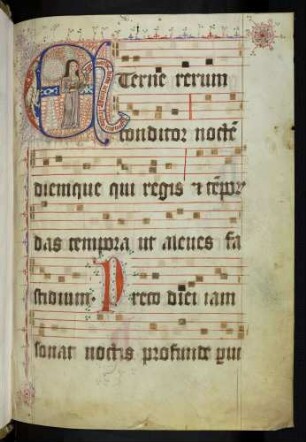 Eterne rerum
conditor noctē
diemque qui regis ⁊ tēpor
das tempora ut aleues fa
stidium. Preco diei iam
sonat noctis profunde per